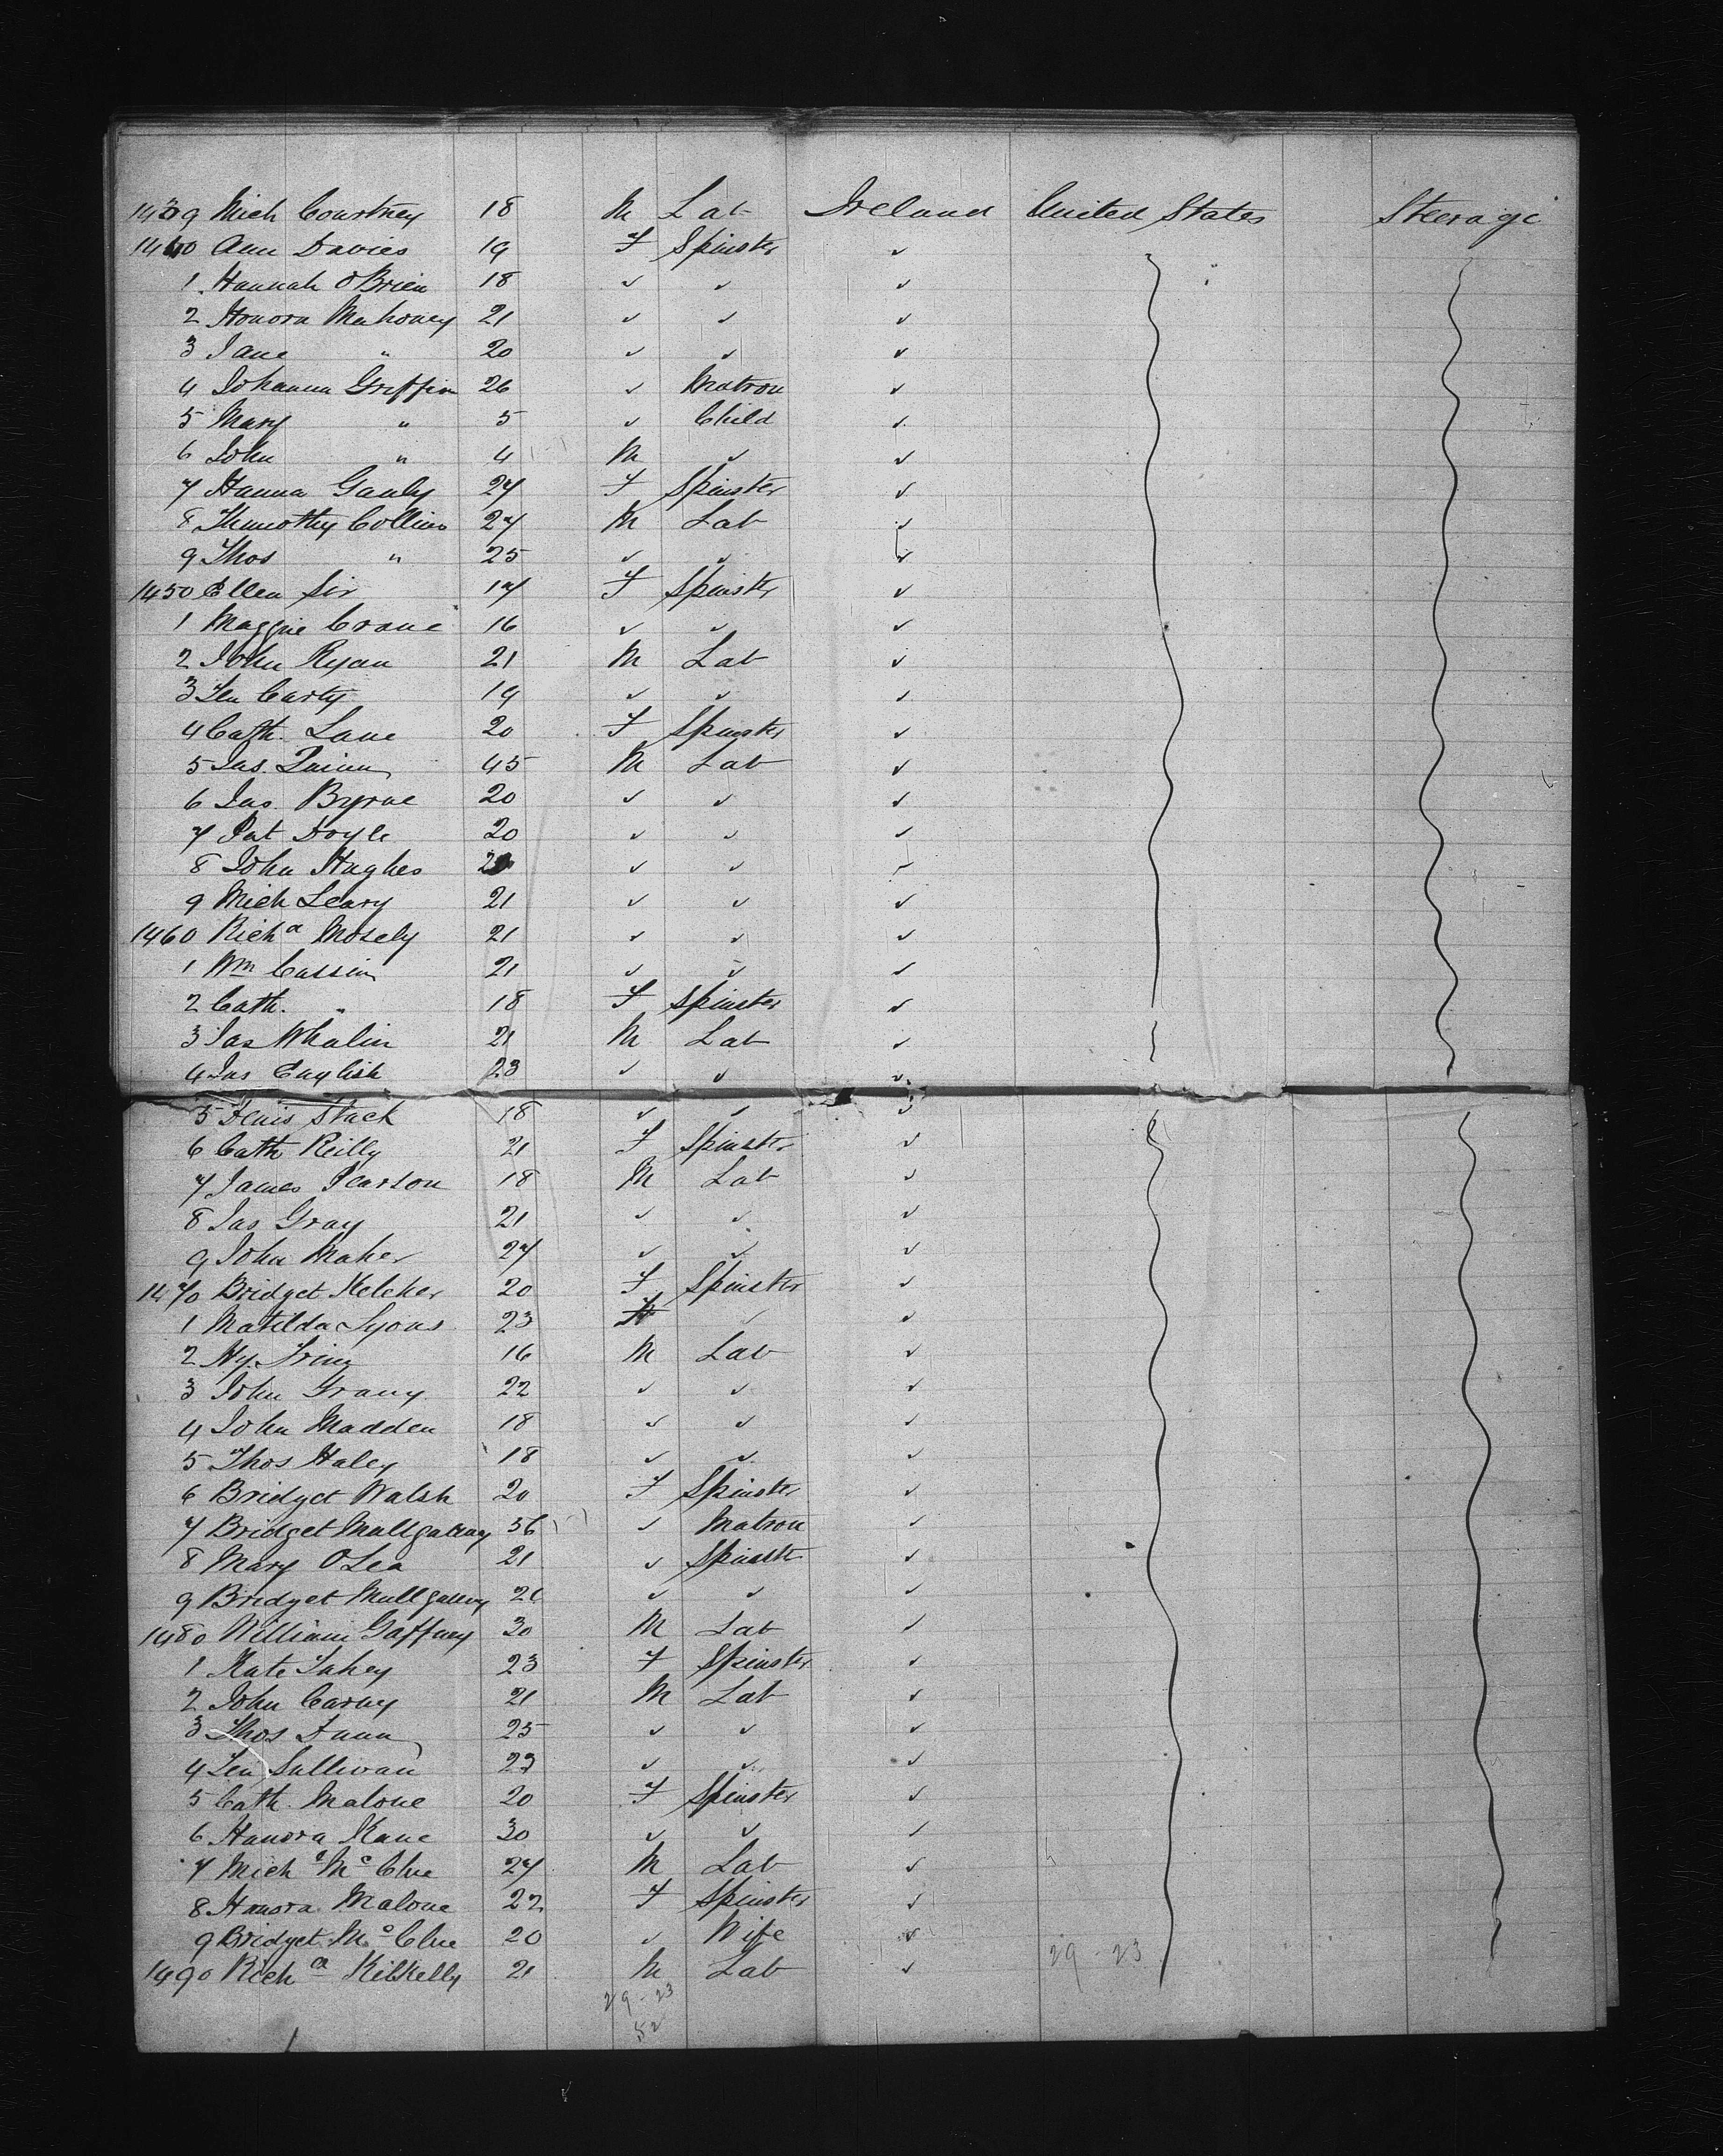 1439 Mich Courtney 18 M Lab Ireland United States Steerage
1440 Ann Davies 19 F Spinster ✓
1 Hannah O'Brien 18 ✓ ✓ ✓
2 Honora Mahoney 21 ✓ ✓ ✓
3 Jane " 20 ✓ ✓ ✓
4 Johanna Griffin 26 ✓ Matron ✓
5 Mary " 5 ✓ Child ✓
6 John " 4 M ✓ ✓
7 Hanna Gauly 27 F Spinster ✓
8 Thimothy Collins 27 M Lab ✓
9 Thos " 25 ✓ ✓ ✓
1450 Ellen Sir 17 F Spinster ✓
1 Maggie Crane 16 ✓ ✓ ✓
2 John Ryan 21 M Lab ✓
3 Jen Carty 19 ✓ ✓ ✓
4 Cath. Lane 20 F Spinster ✓
5 Jas. Quinn 45 M Lab ✓
6 Jas. Byrne 20 ✓ ✓ ✓
7 Pat Doyle 20 ✓ ✓ ✓
8 John Hughes ✓ ✓ ✓
9 Mich Leary 21 ✓ ✓ ✓
1460 Richd Mosely 21 ✓ ✓ ✓
1 Wm Cassin 21 ✓ ✓ ✓
2 Cath. " 18 F Spinster ✓
3 Jas Whalin 21 M Lab ✓
4 Jas English 23 ✓ ✓ ✓
5 Denis Stack 18 ✓ ✓ ✓
6 Cath Reilly 21 F Spinster ✓
7 James Pearson 18 M Lab ✓
8 Jas Gray 21 ✓ ✓ ✓
9 John Maher 27 ✓ ✓ ✓
1470 Bridget Kelcher 20 F Spinster ✓
1 Matilda Lyons 23 F ✓ ✓
2 Hy. 16 M Lab ✓
3 John Grany 22 ✓ ✓ ✓
4 John Madden 18 ✓ ✓ ✓
5 Thos Haley 18 ✓ ✓ ✓
6 Bridget Walsh 20 F Spinster ✓
7 Bridget 36 ✓ Matron ✓
8 Mary O'Lea 21 ✓ Spinster ✓
9 Bridget ✓ ✓ ✓
1480 William Gaffney 30 M Lab ✓
1 Kate Fahey 23 F Spinster ✓
2 John Carny 21 M Lab ✓
3 Thos Dunn 25 ✓ ✓ ✓
4 Jen Sullivan 23 ✓ ✓ ✓
5 Cath. Malone 20 F Spinster ✓
6 Hanora Kane 30 ✓ ✓ ✓
7 Mich Mc Clue 27 M Lab ✓
8 Hanora Malone 22 F Spinster ✓
9 Bridget Mc Clue 20 ✓ Wife ✓
1490 Richd Kilkelly 21 M Lab ✓ 29-23
29-23
52